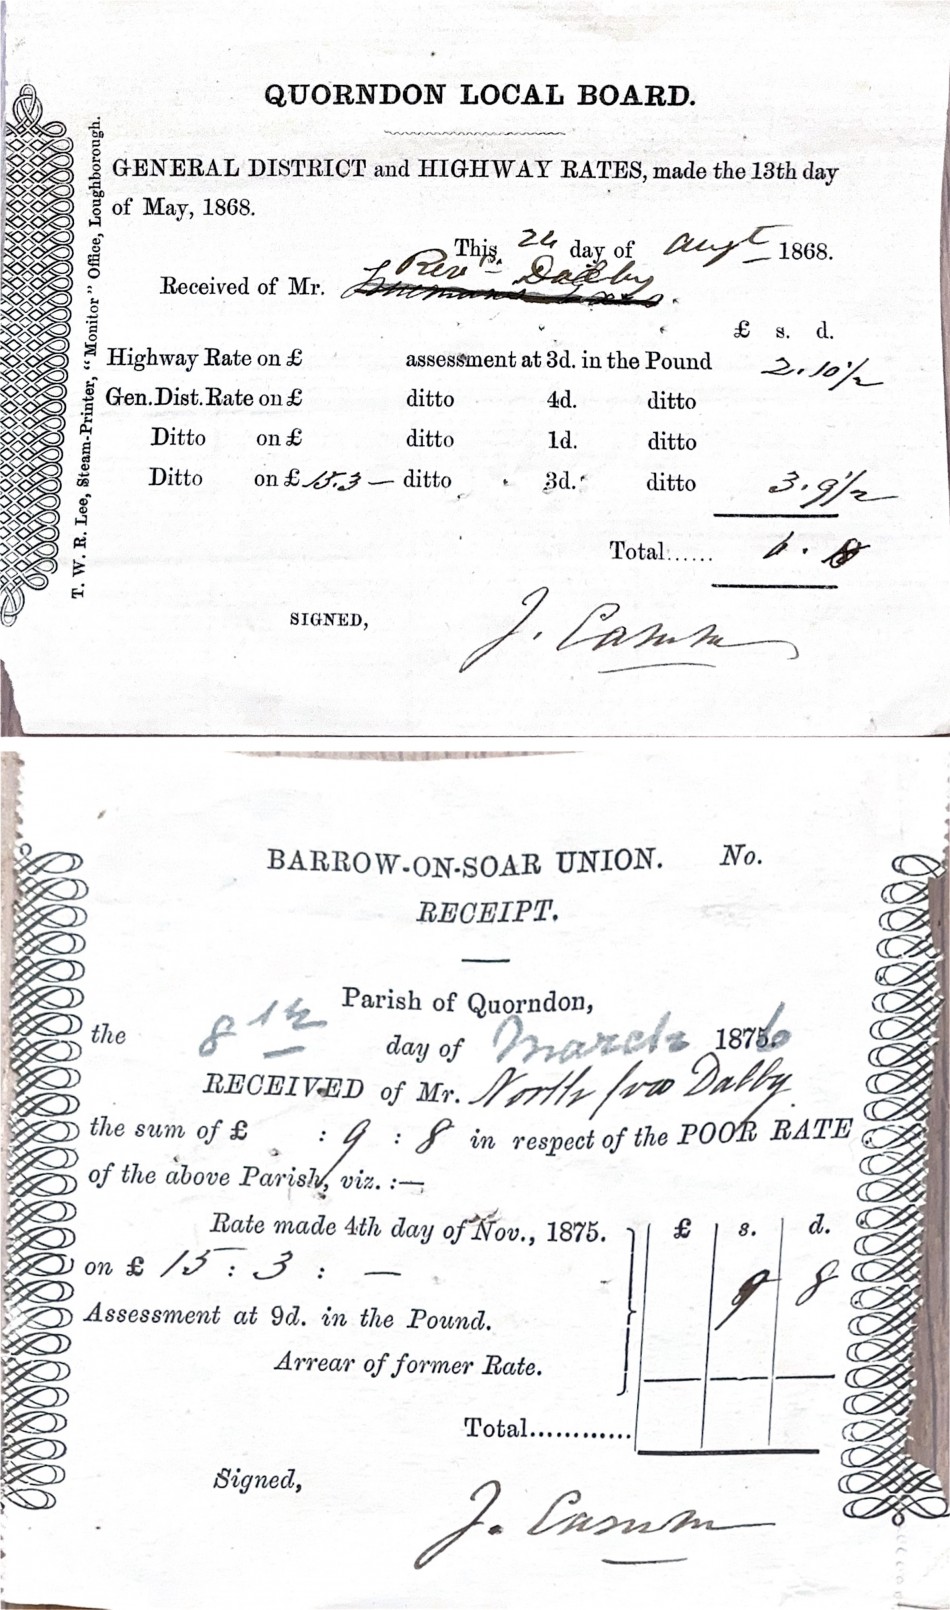 QUORNDON LOCAL BOARD.
GENERAL DISTRICT and HIGHWAY RATES, made the 13th day
of May, 1868.
This 24 day of Augt 1868.
Revd Dalby
Received of Mr.
£ s. d.
Highway Rate on £ assessment at 3d. in the Pound 2.10½
Gen.Dist.Rate on £ ditto 4d. ditto
Ditto on £ ditto 1d. ditto
Ditto on £ 15.3 — ditto 3d. ditto 3.9½
Total...... 6. 8
SIGNED,
J. Camm
T. W. R. Lee, Steam-Printer, "Monitor" Office, Loughborough.
BARROW-ON-SOAR UNION. No.
RECEIPT.
Parish of Quorndon,
the 8th day of March 1876
RECEIVED of Mr. North for Dalby
the sum of £ : 9 : 8 in respect of the POOR RATE
of the above Parish, viz. :—
Rate made 4th day of Nov., 1875. £ s. d.
on £ 15 : 3 : — 9 8
Assessment at 9d. in the Pound.
Arrear of former Rate.
Total............
Signed,
J. Camm